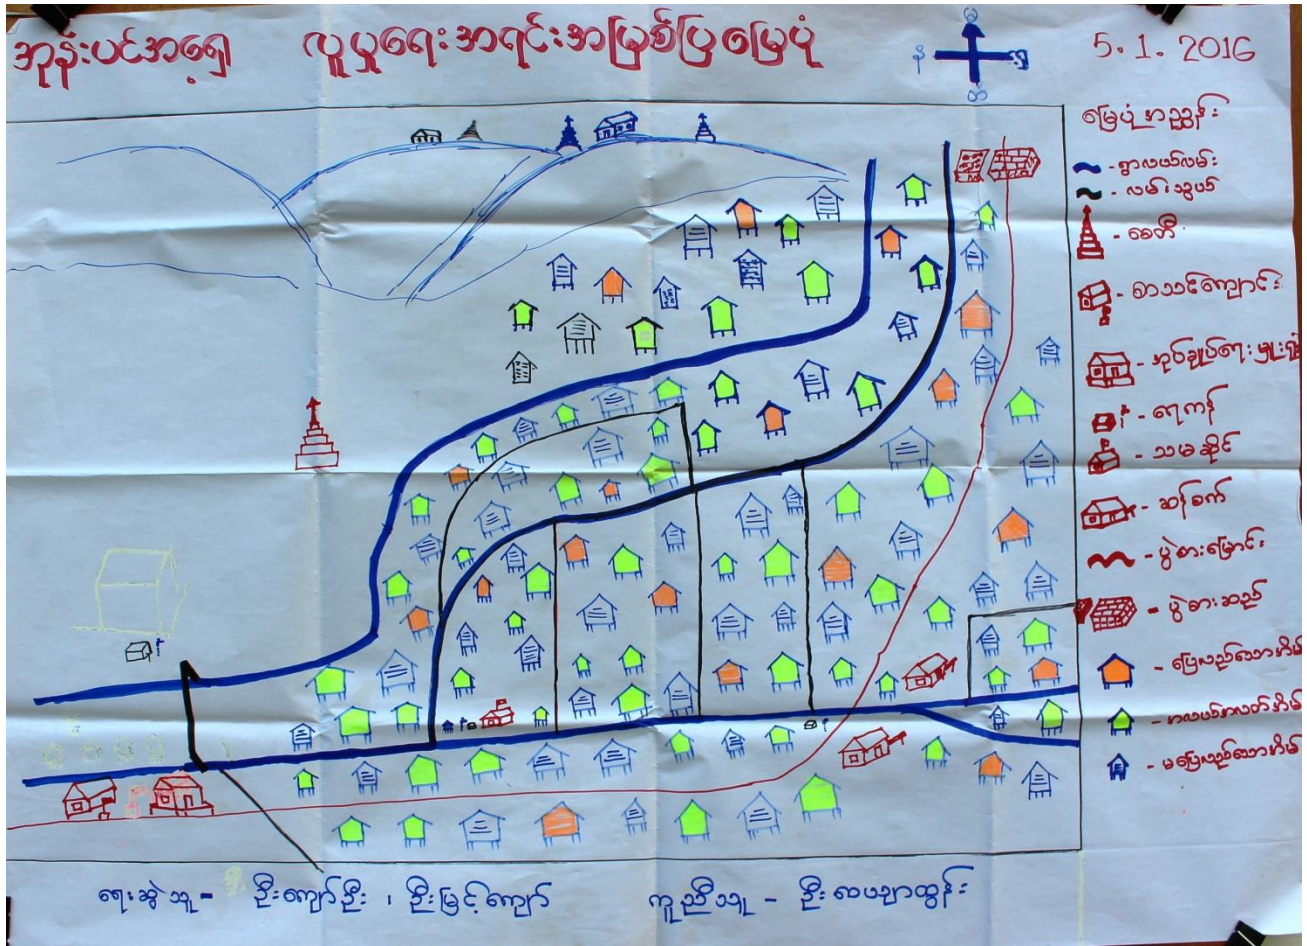 အုန်းပင်အရှေ့ လူမှုရေးအရင်းအမြစ်ပြမြေပုံ
5. 1. 2016
မြေပုံအညွှန်း
- ရွာလယ်လမ်း
- လမ်းသွယ်
- စေတီ
- စာသင်ကျောင်း
- အုပ်ချုပ်ရေးမှူးရုံး
- ရေကန်
- သမဆိုင်
- ဆန်စက်
- မွဲစားမြောင်း
- မွဲစားဆည်
- ပြေလည်သောအိမ်
- အလယ်အလတ်အိမ်
- မပြေလည်သောအိမ်
ရေးဆွဲသူ - ဦးကျော်ဦး ၊ ဦးမြင့်ကျော် ကူညီသူ - ဦး